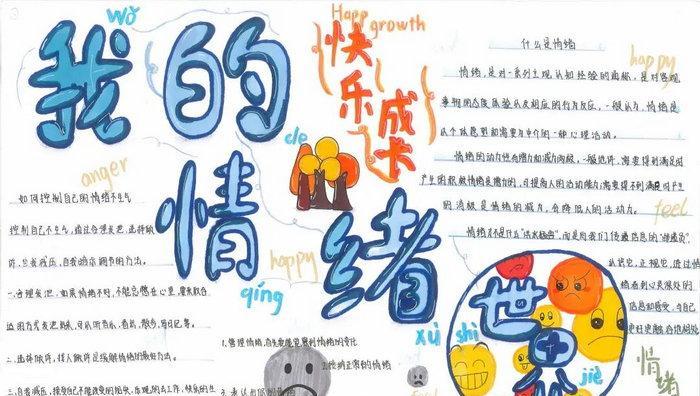 我的
情绪
世界
wǒ
de
qíng
xù
shì
jiè
Happ
growth
快乐
成长
anger
happy
如何控制自己的情绪不生气
控制自己不生气,通过合理发泄,选择倾
诉,自我减压,自我暗示调节的方法。
一、合理发泄,如果情绪不好,不能忽憋在心里,要采取合
适的方式发泄
二、选择倾诉,找人倾诉是缓解情绪的最好方法。
三、自我减压,接受自己不能改变的
1.管理情绪,首先要能觉察到情绪的变化
2.接纳正常的情绪
什么是情绪
happy
情绪,是对一系列主观认知经验的通称,是对客观
事物的态度体验以及相应的行为反应,一般认为,情绪是
以个体愿望和需要为中介的一种心理活动。
情绪的动力性有增力和减力两极,一般地讲,需要得到满足时
产生的积极情绪是增力的,可提高人的活动能力;需要得不到满足时产生
的消极是情绪的减力,会降低人的活动力。
feel
情绪不是什么“洪水猛兽”,而是向我们传递信息的“信使”
认识它,正视它,透过情
绪看到心灵深处的
情绪